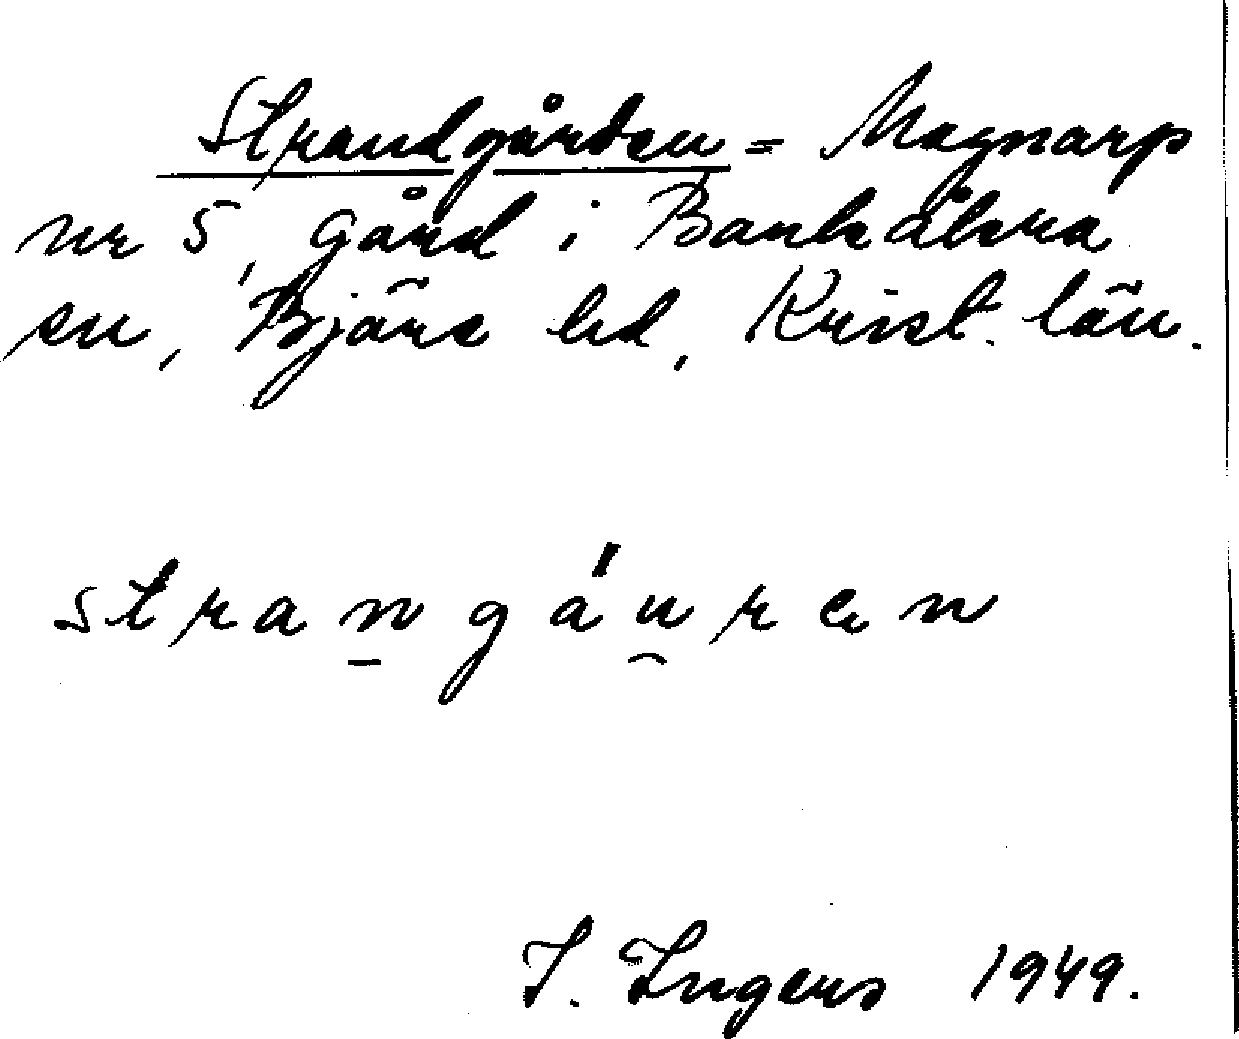 Strandgården = Magnarp
nr 5, gård i Barkåkra
sn, Bjäre hd, Krist. län.
strangáuren
I. Ingers 1949.